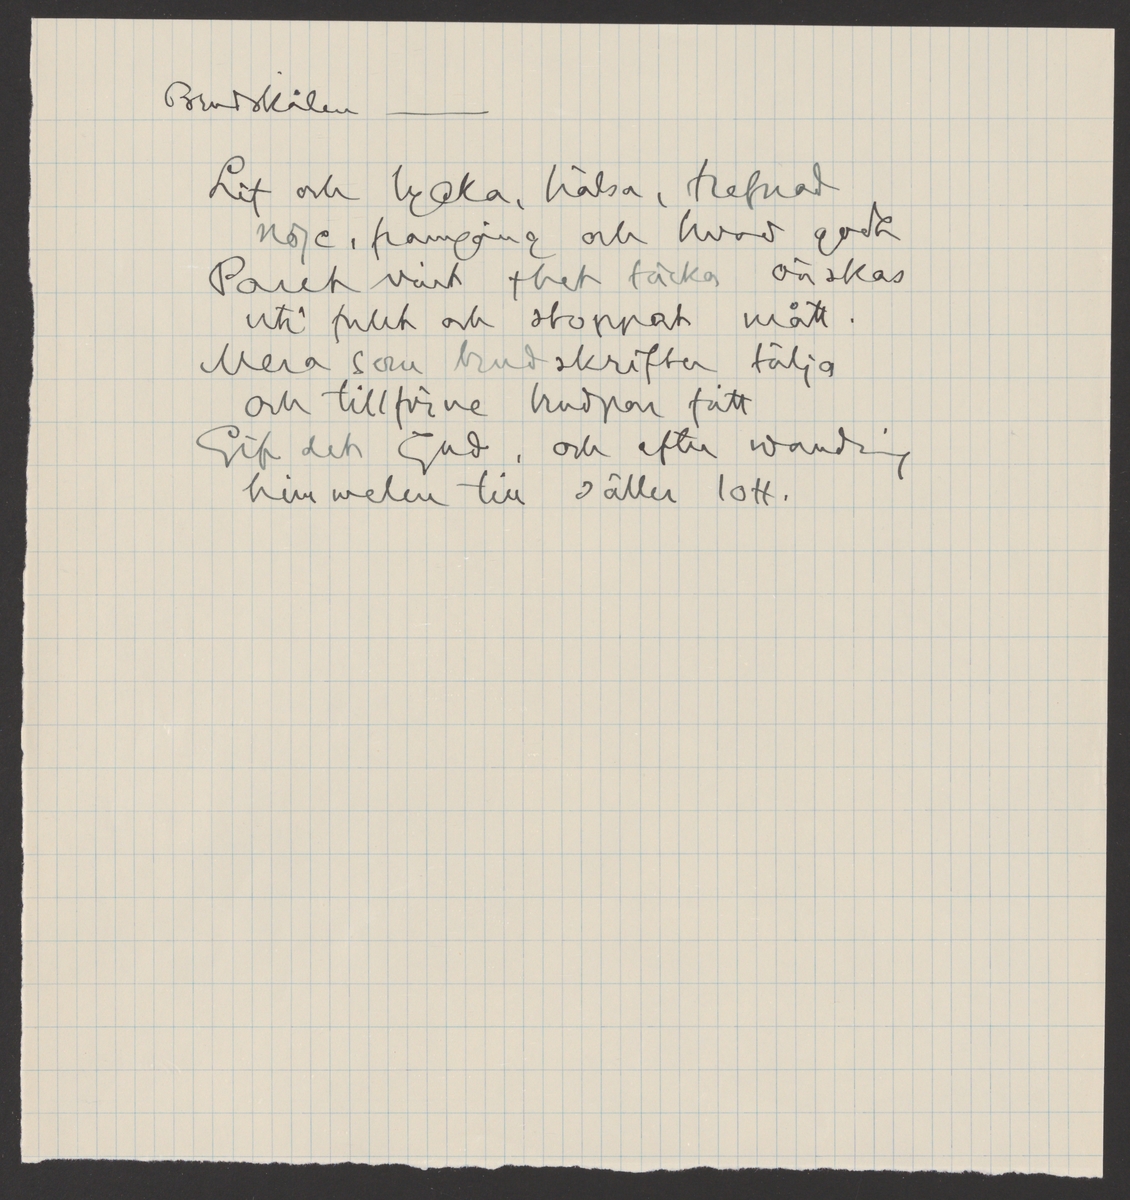 Brudskålen ———
Lif och lycka, hälsa, trefnad
nöje, framgång och hvad godt
Paret vårt thet täcka önskas
uti fullt och stoppat mått.
Mera som brudskrifter tälja
och tillförne brudpar fått
Gif det Gud, och efter wandring
himmelen till säller lott.